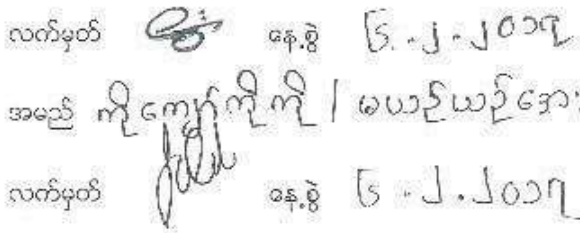 လက်မှတ် နေ့စွဲ ၆.၂.၂၀၁၇
အမည် ကိုကျော်ကိုကို / မယဉ်ယဉ်အေး
လက်မှတ် နေ့စွဲ ၆.၂.၂၀၁၇